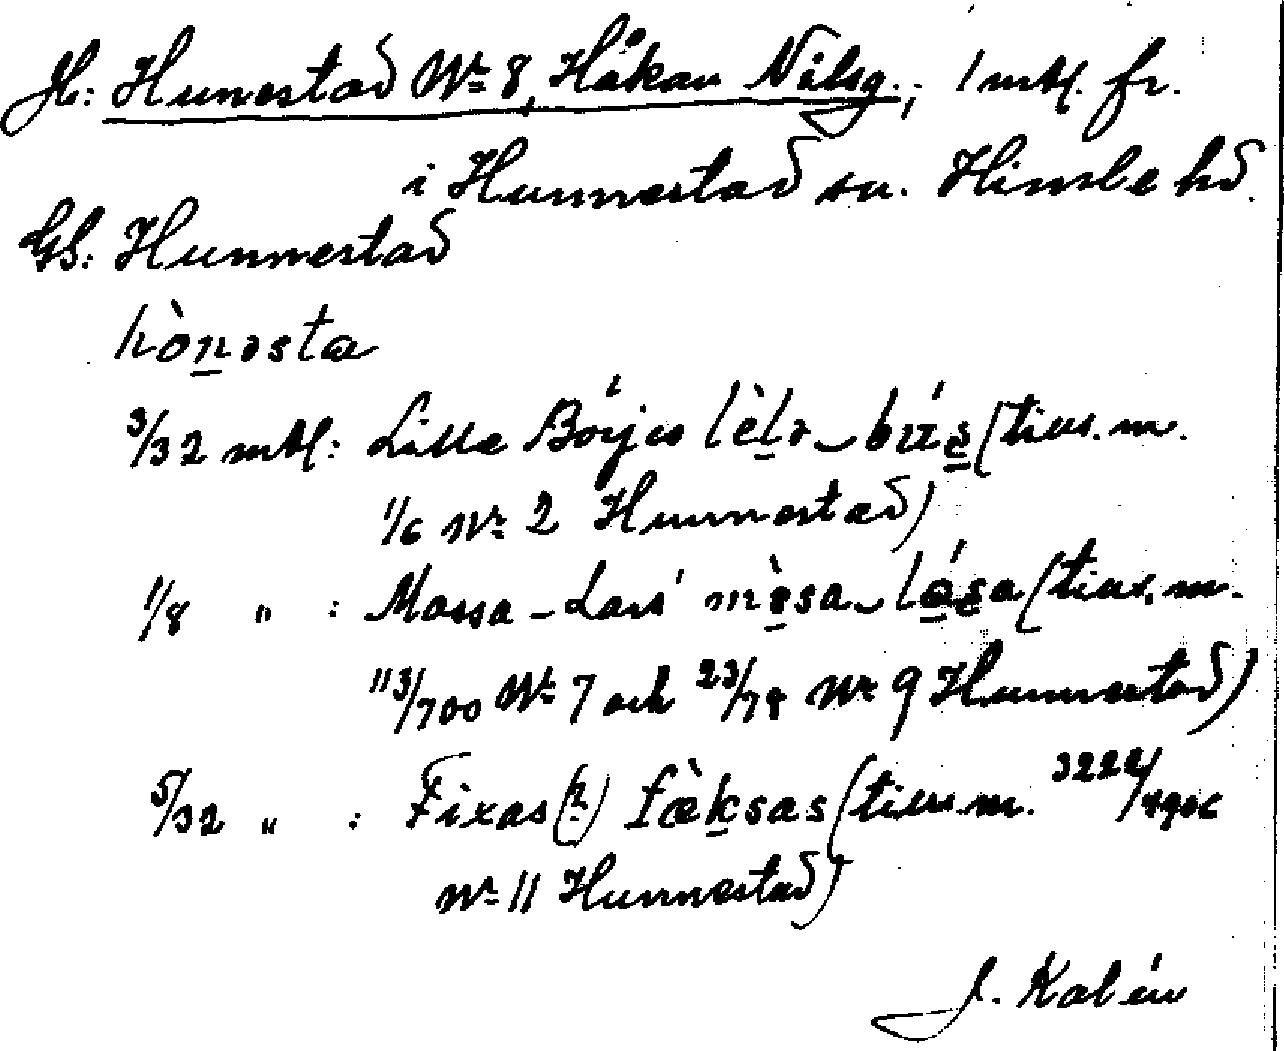 Jb: Hunestad Nr 8, Håkan Nilsg., 1 mtl. fr.
i Hunnestad sn. Himle hd.
GS: Hunnestad
hònəsta
3/32 mtl: Lilla Börjes lèlə (tills. m.
1/6 Nr 2 Hunnestad)
1/8 " : Massa-Lars' mèsa (tills. m.
113/700 Nr 7 och 23/78 Nr 9 Hunnestad)
5/32 " : Fixas (?) fæ̀ksas (tills. m.
Nr 11 Hunnestad)
J. Kalén